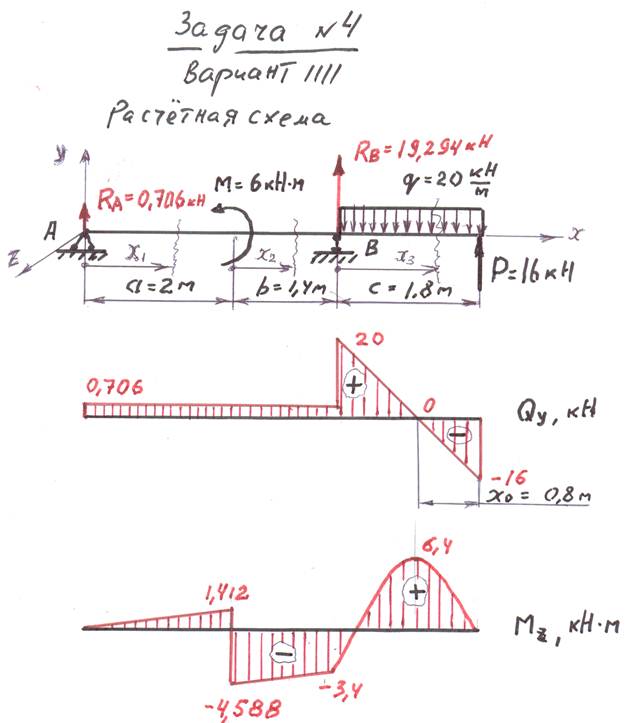 Задача №4
Вариант 1111
Расчётная схема
y
RB=19,294кН
RA=0,706кН
M=6кН·м
q=20 кН/м
A
B
x
z
x1
x2
x3
P=16кН
a=2м
b=1,4м
c=1,8м
20
0,706
+
0
Qy, кН
−
-16
x0= 0,8м
6,4
1,412
+
Mz, кН·м
−
-3,4
-4,588